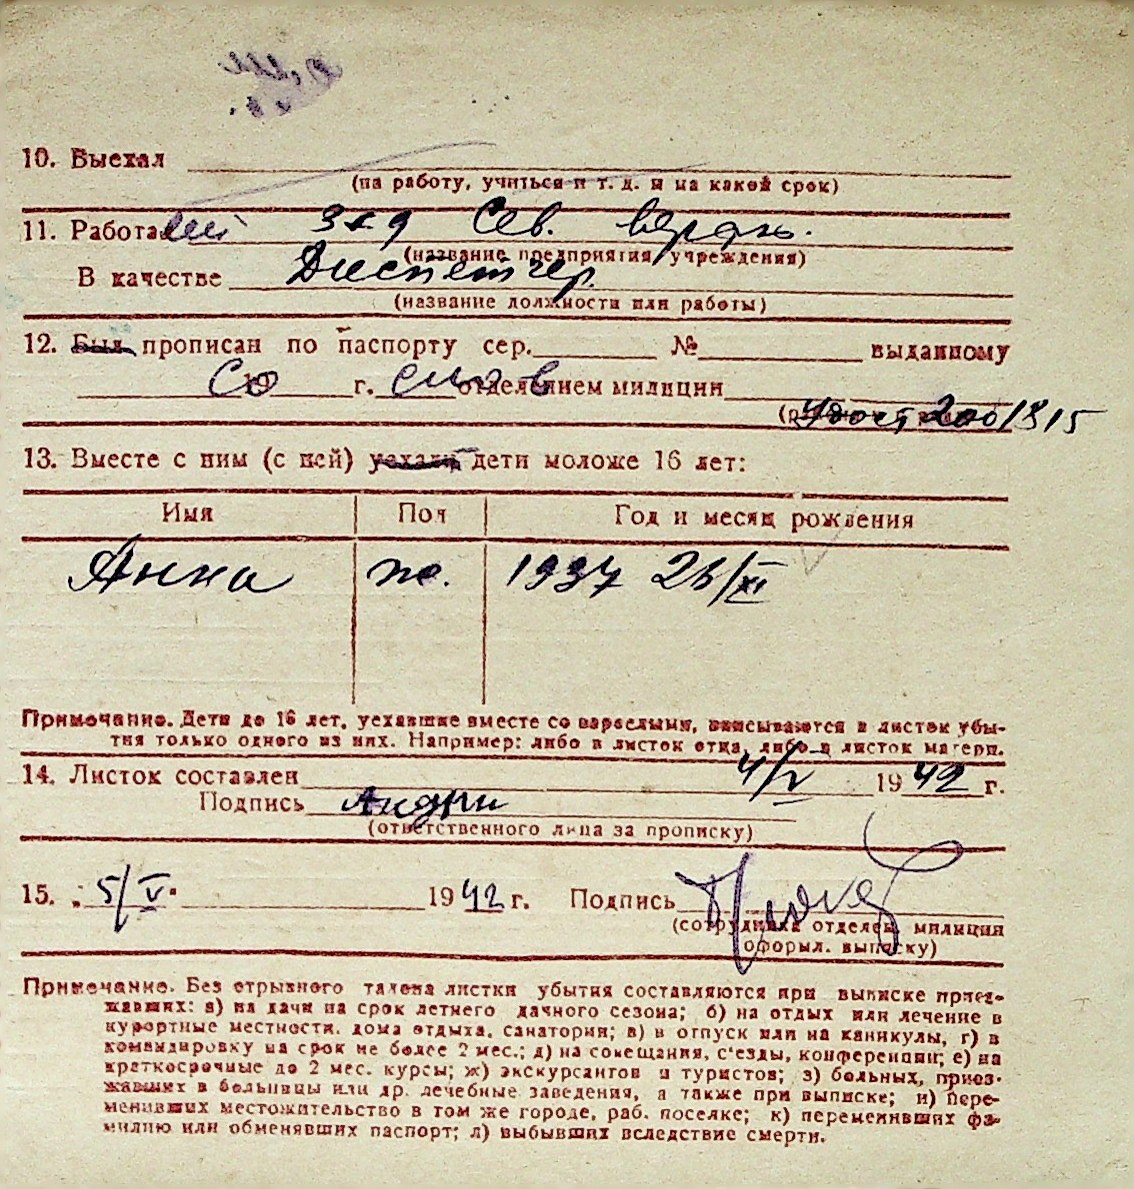 10. Выехал
(на работу, учиться и т. д. и на какой срок)
11. Работал
Сев.
(название предприятия, учреждения)
В качестве Диспетчер.
(название должности или работы)
12. Был прописан по паспорту сер. № выданному
со 19 г. слов отделением милиции
Удост 2001815
13. Вместе с ним (с ней) уехали дети моложе 16 лет:
Имя Пол Год и месяц рождения
Анна ж. 1937 26/XI
Примечание. Дети до 16 лет, уехавшие вместе со взрослыми, вписываются в листок убы-
тия только одного из них. Например: либо в листок отца, либо в листок матери.
14. Листок составлен 4/V 1942 г.
Подпись
(ответственного лица за прописку)
15. 5/V 1942 г. Подпись
(сотрудника отделен. милиции
оформл. выписку)
Примечание. Без отрывного талона листки убытия составляются при выписке приез-
жавших: а) на дачи на срок летнего дачного сезона; б) на отдых или лечение в
курортные местности, дома отдыха, санатории; в) в отпуск или на каникулы, г) в
командировку на срок не более 2 мес.; д) на совещания, с'езды, конференции; е) на
краткосрочные до 2 мес. курсы; ж) экскурсантов и туристов; з) больных, приез-
жавших в больницы или др. лечебные заведения, а также при выписке; и) пере-
менивших местожительство в том же городе, раб. поселке; к) переменивших фа-
милию или обменявших паспорт; л) выбывших вследствие смерти.